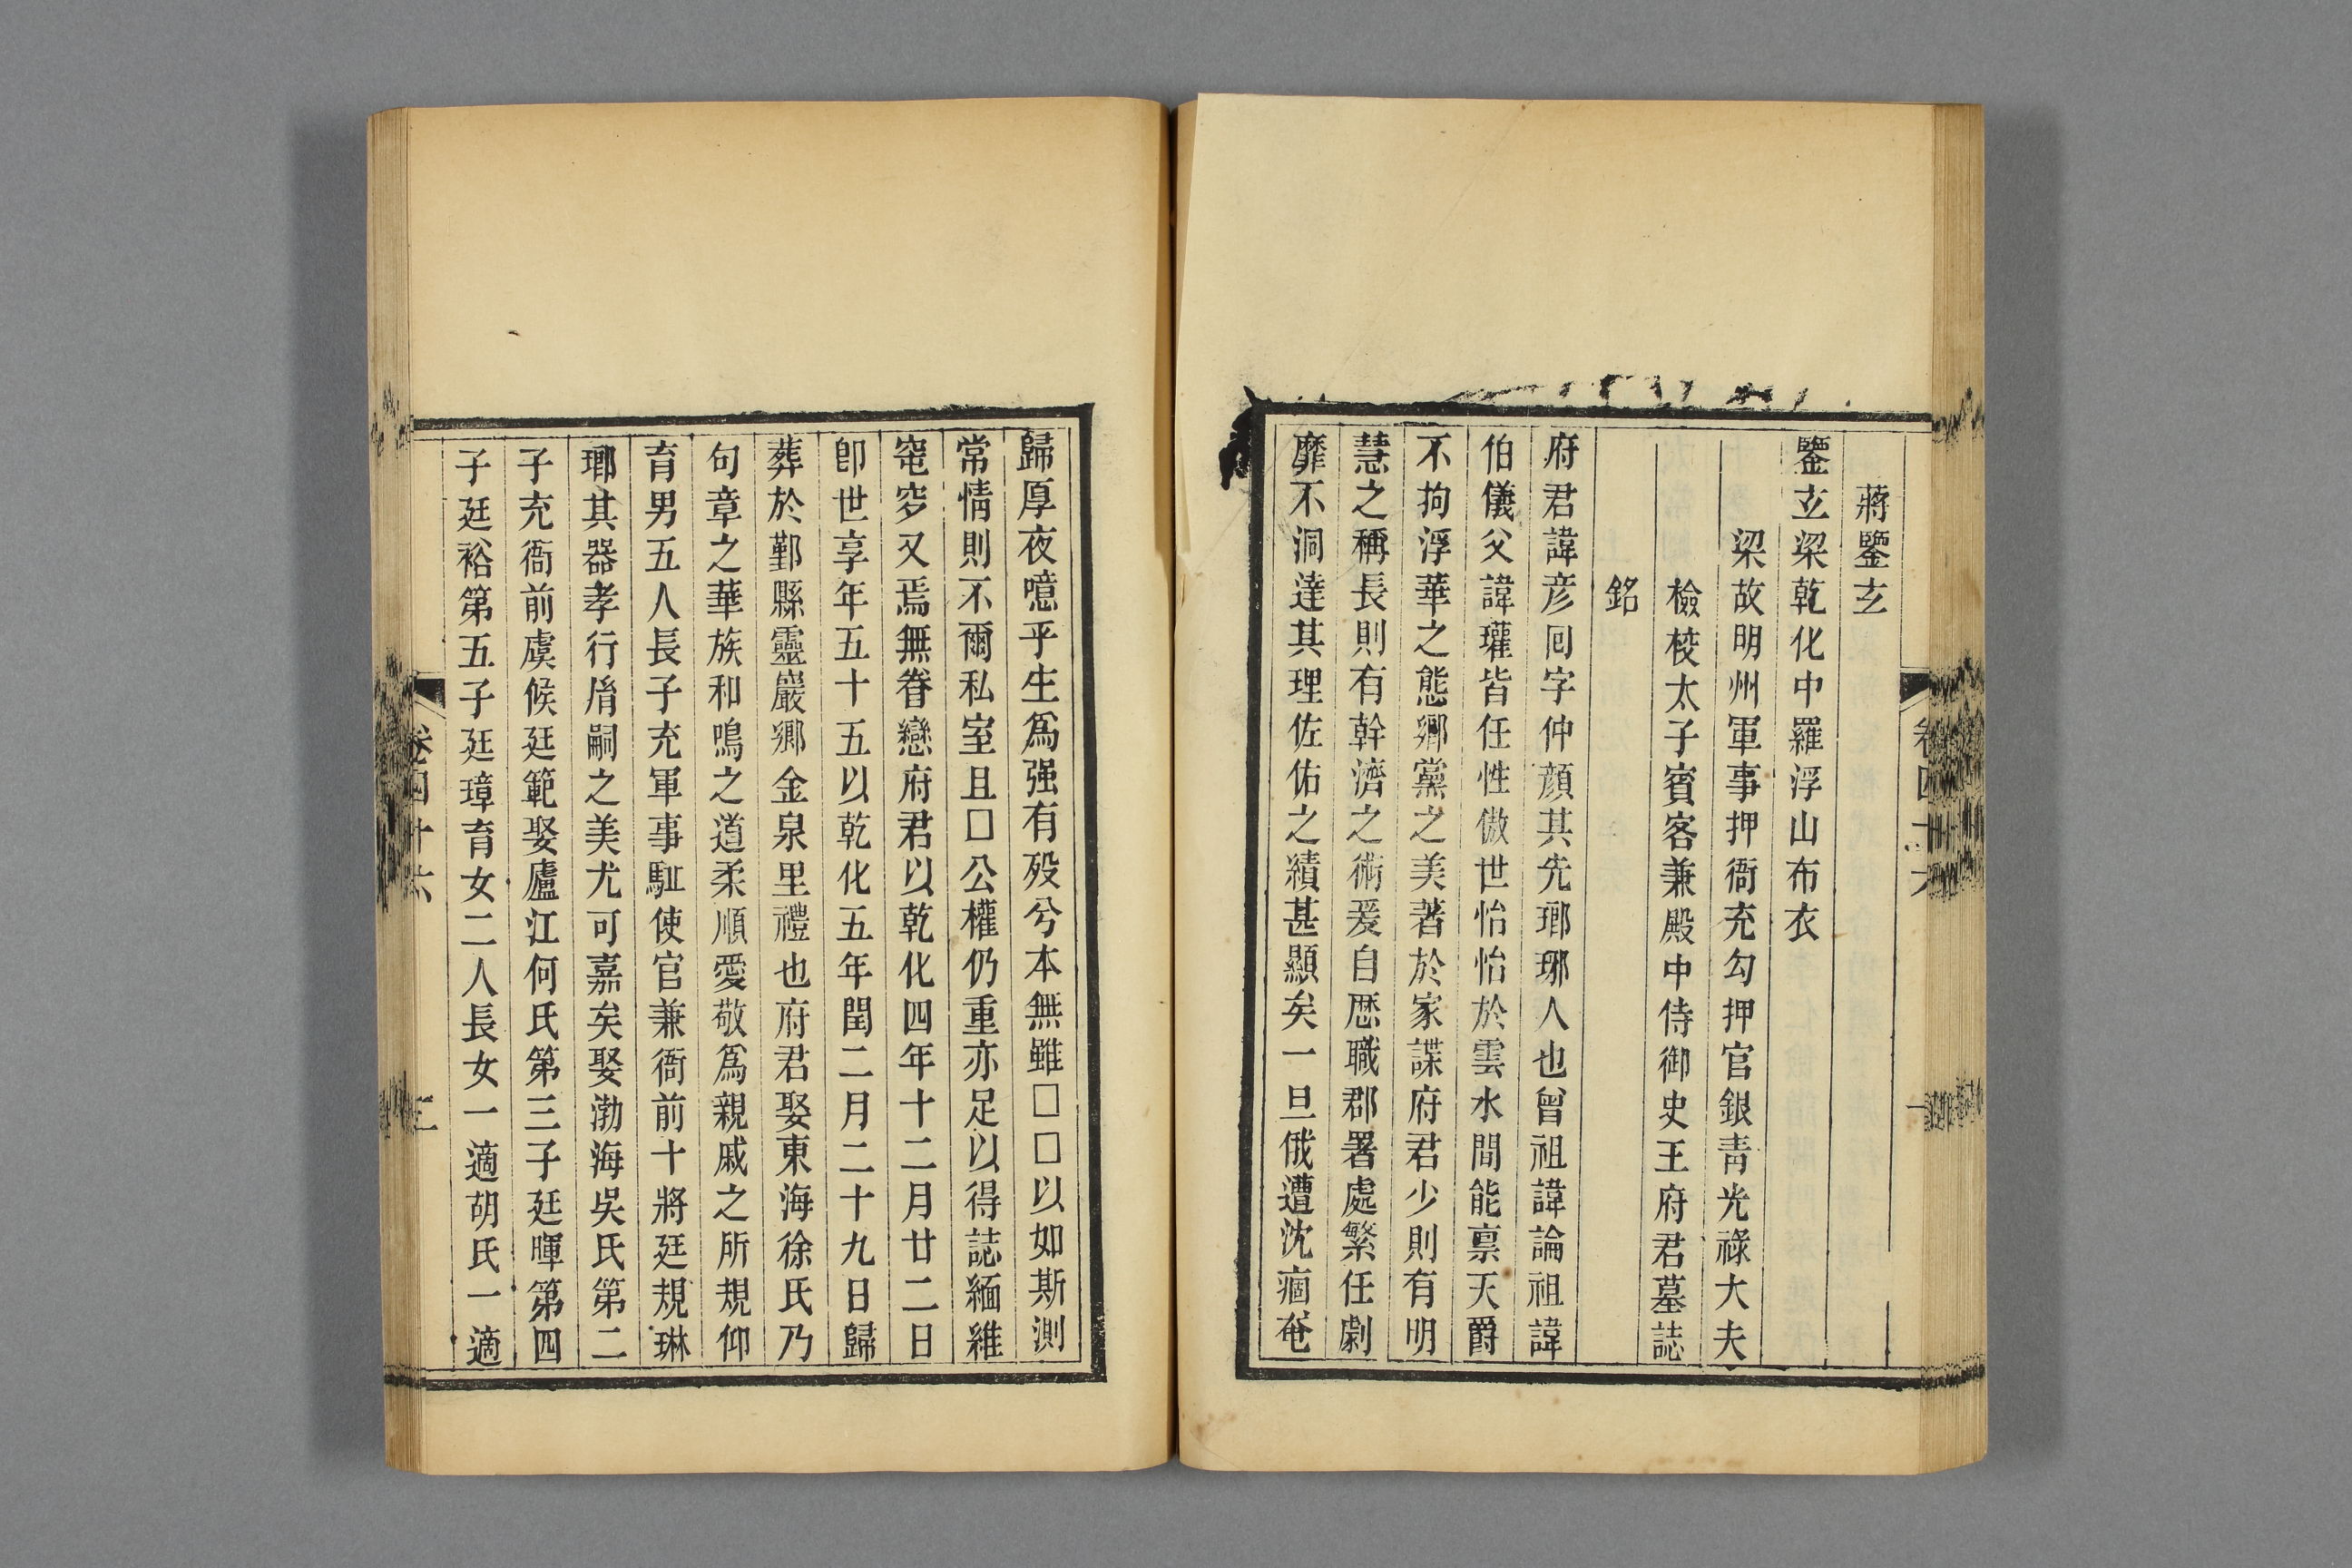 蔣鑒玄
鑒玄梁乾化中羅浮山布衣
梁故明州軍事押衙充勾押官銀靑光祿大夫
檢校太子賓客兼殿中侍御史王府君墓誌
銘
府君諱彦囘字仲顔其先瑯琊人也曾祖諱論祖諱
伯儀父諱瓘皆任性傲世怡怡於雲水間能禀天爵
不拘浮華之態鄉黨之美著於家諜府君少則有明
慧之稱長則有幹濟之術爰自歷職郡署處繁任劇
靡不洞達其理佐佑之績甚顯矣一旦俄遭沈痼奄
歸厚夜噫乎生爲强有殁兮本無雖□□以如斯測
常情則不爾私室且□公權仍重亦足以得誌緬維
窀穸又焉無眷戀府君以乾化四年十二月廿二日
卽世享年五十五以乾化五年閏二月二十九日歸
葬於鄞縣靈巖鄉金泉里禮也府君娶東海徐氏乃
句章之華族和鳴之道柔順愛敬爲親戚之所規仰
育男五人長子充軍事駈使官兼衙前十將廷規琳
瑯其器孝行胤嗣之美尤可嘉矣娶渤海吳氏第二
子充衙前虞候廷範娶廬江何氏第三子廷暉第四
子廷裕第五子廷璋育女二人長女一適胡氏一適
卷四十六